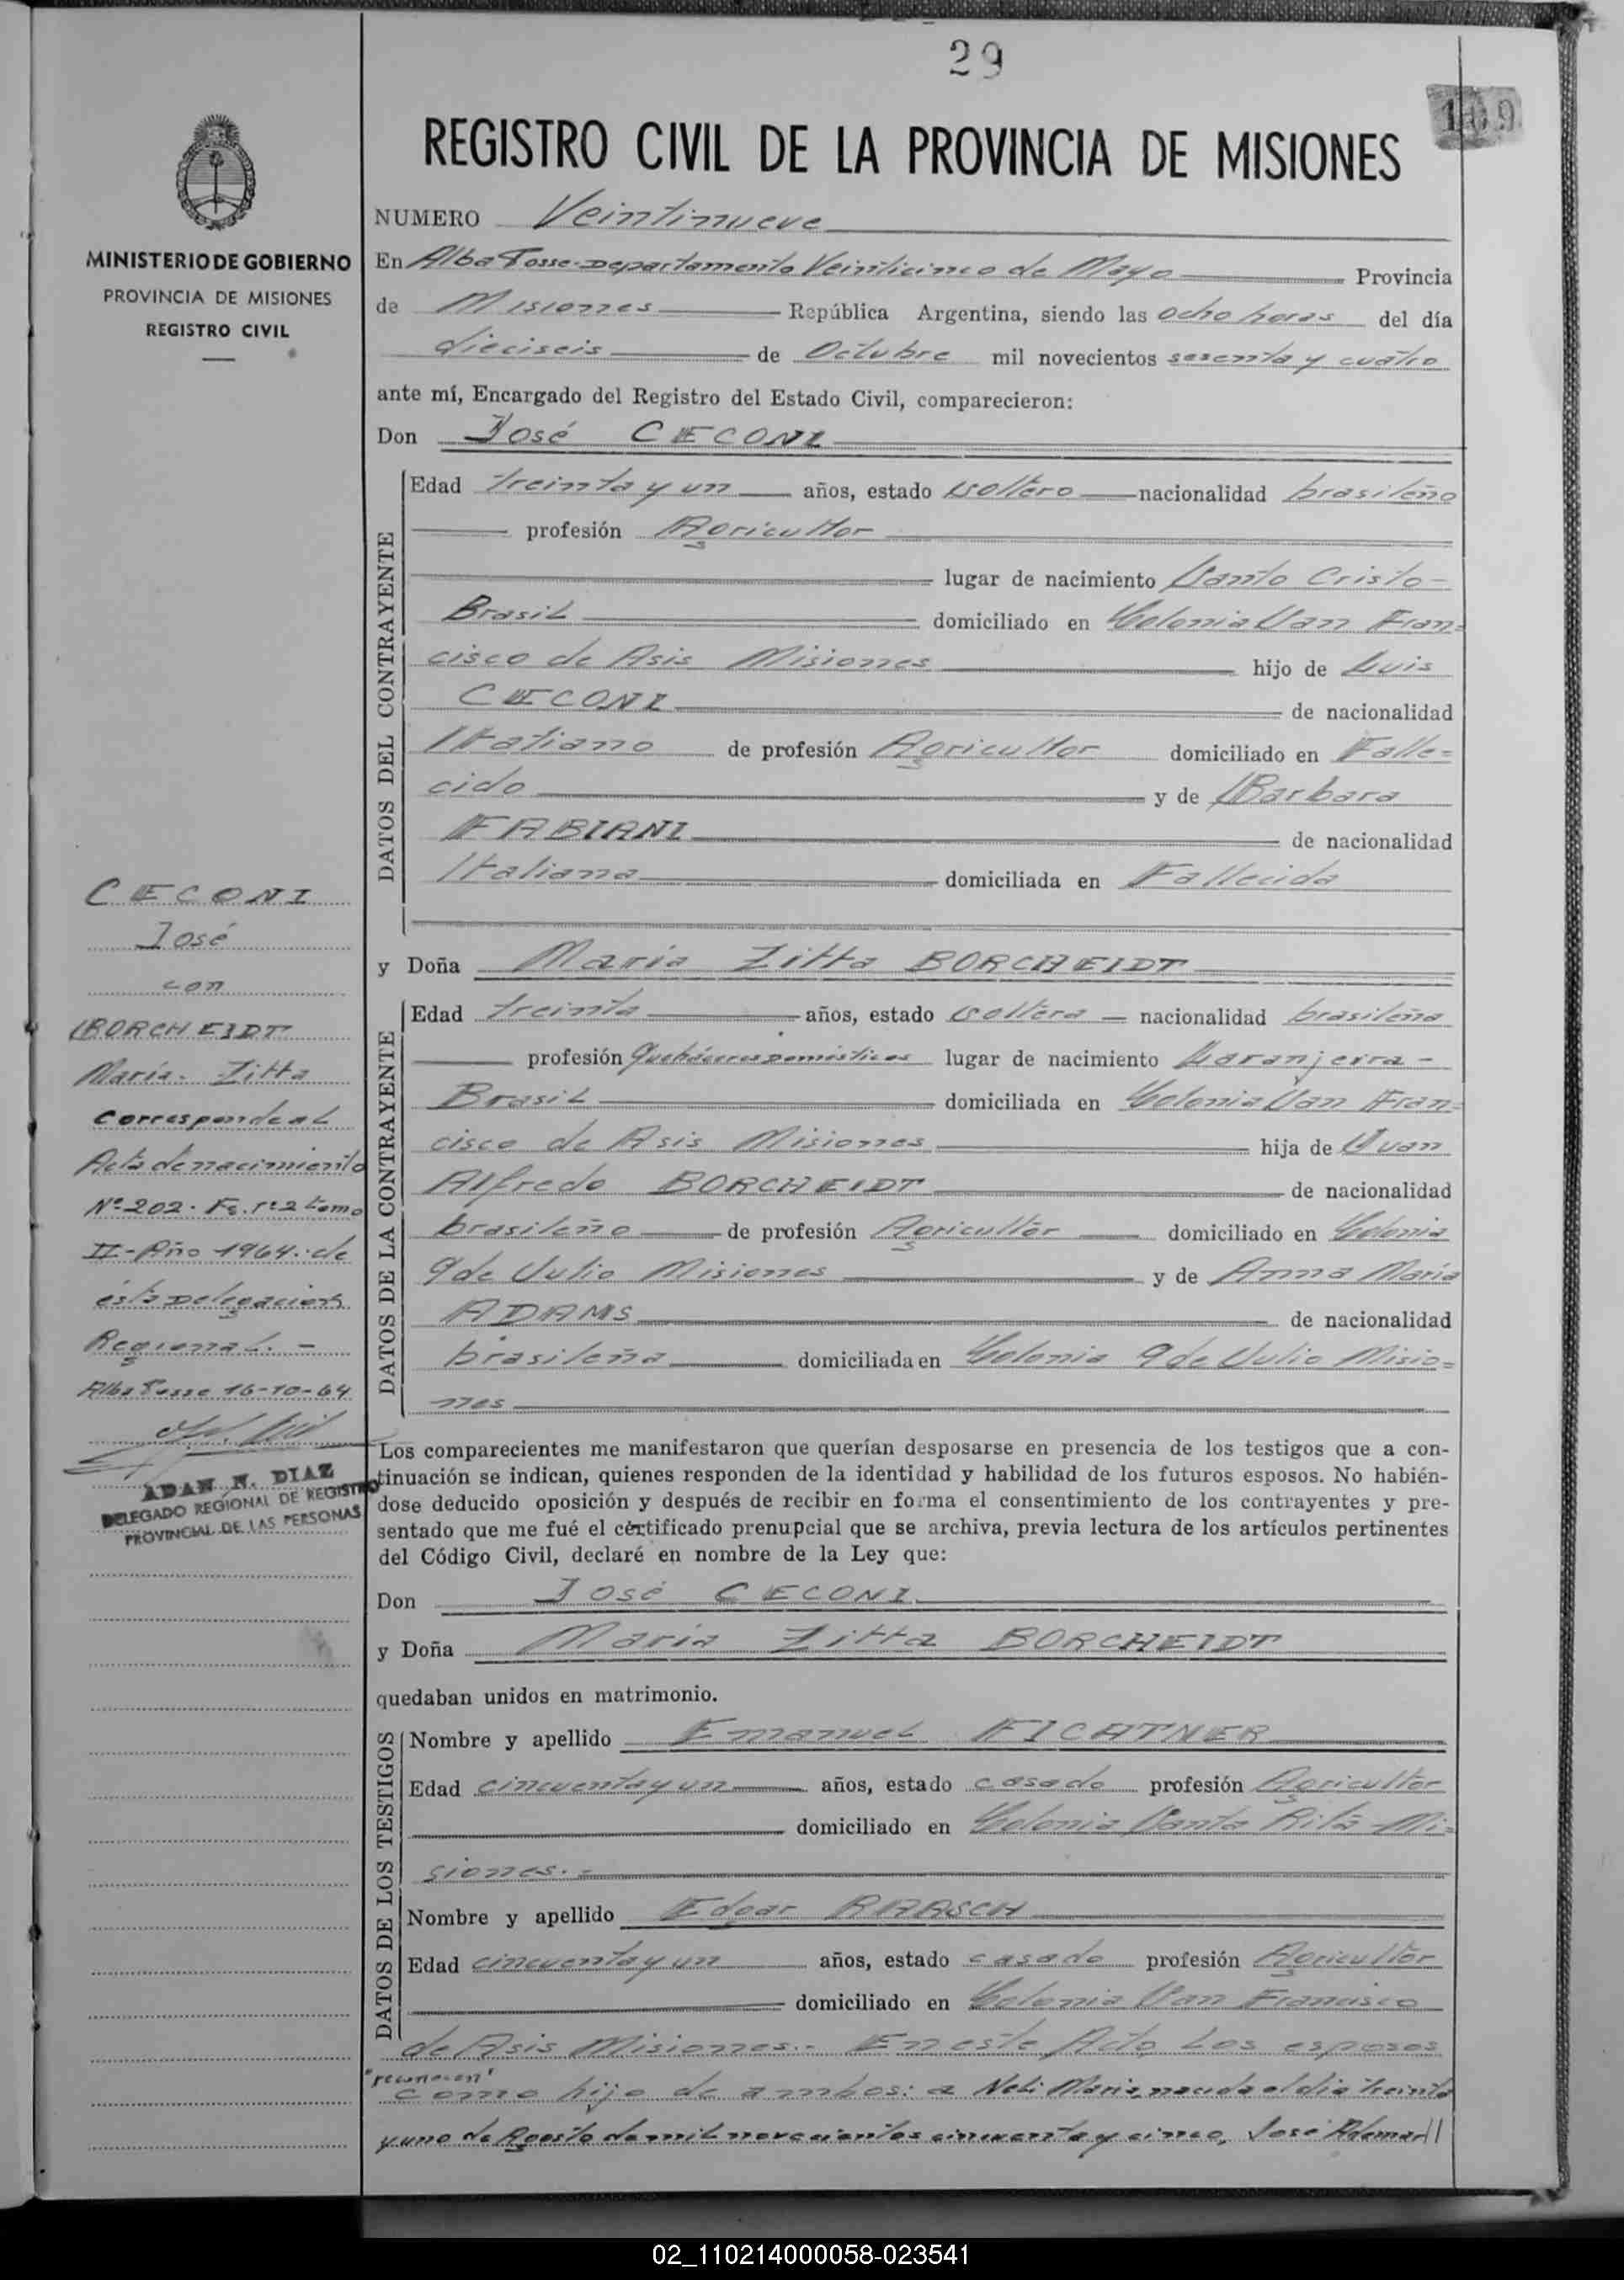 29
109
REGISTRO CIVIL DE LA PROVINCIA DE MISIONES
MINISTERIO DE GOBIERNO
PROVINCIA DE MISIONES
REGISTRO CIVIL
NUMERO Veintinueve
En Alba Posse-Departamento Veinticinco de Mayo Provincia
de Misiones República Argentina, siendo las ocho horas del día
dieciseis de Octubre mil novecientos sesenta y cuatro
ante mí, Encargado del Registro del Estado Civil, comparecieron:
Don José CECONI
DATOS DEL CONTRAYENTE
Edad treinta y un años, estado soltero nacionalidad brasileño
profesión Agricultor
lugar de nacimiento Santo Cristo-
Brasil domiciliado en Colonia San Fran=
cisco de Asis Misiones hijo de Luis
CECONI de nacionalidad
Italiano de profesión Agricultor domiciliado en Falle=
cido y de Barbara
FABIANI de nacionalidad
Italiana domiciliada en Fallecida
y Doña Maria Zitta BORCHEIDT
DATOS DE LA CONTRAYENTE
Edad treinta años, estado soltera nacionalidad brasileña
profesión Quehaceres Domésticos lugar de nacimiento Laranjeira -
Brasil domiciliada en Colonia San Fran=
cisco de Asis Misiones hija de Juan
Alfredo BORCHEIDT de nacionalidad
brasileño de profesión Agricultor domiciliado en Colonia
9 de Julio Misiones y de Anna María
ADAMS de nacionalidad
brasileña domiciliada en Colonia 9 de Julio Misio=
nes
CECONI
José
con
BORCHEIDT
María Zitta
Corresponde al
Acta de nacimiento
Nº 202. Fs. 1º 2 tomo
II-Año 1964. de
ésta Delegacion
Regional. -
Alba Posse 16-10-64
ADAN N. DIAZ
DELEGADO REGIONAL DE REGISTRO
PROVINCIAL DE LAS PERSONAS
Los comparecientes me manifestaron que querían desposarse en presencia de los testigos que a con-
tinuación se indican, quienes responden de la identidad y habilidad de los futuros esposos. No habién-
dose deducido oposición y después de recibir en forma el consentimiento de los contrayentes y pre-
sentado que me fué el certificado prenupcial que se archiva, previa lectura de los artículos pertinentes
del Código Civil, declaré en nombre de la Ley que:
Don José CECONI
y Doña María Zitta BORCHEIDT
quedaban unidos en matrimonio.
DATOS DE LOS TESTIGOS
Nombre y apellido Emanuel FICHTNER
Edad cincuenta y un años, estado casado profesión Agricultor
domiciliado en Colonia Santa Rita Mi=
siones.-
Nombre y apellido Edgar RAASCH
Edad cincuenta y un años, estado casado profesión Agricultor
domiciliado en Colonia San Francisco
de Asis Misiones.- En este Acto, los esposos
"reconocen"
como hijo de ambos: a Neli Maria, nacida el día treinta
y uno de Agosto de mil novecientos cincuenta y cinco, José Ademar//
02_110214000058-023541